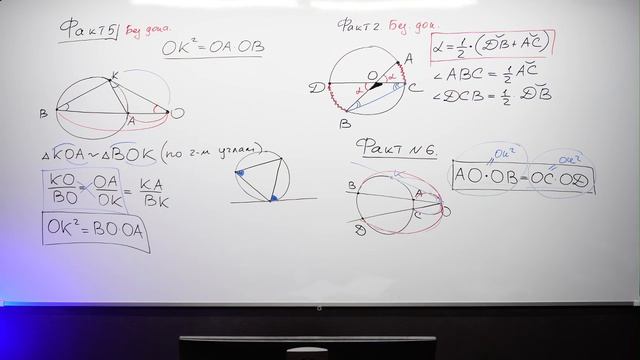 Факт 5 Без док.
OK² = OA·OB
K
B
A
O
△KOA ~ △BOK (по 2-м углам)
KO/BO = OA/OK = KA/BK
OK² = BO·OA
Факт 2 Без. док.
A
O
α
α
D
C
B
α = 1/2·(D͝B + A͝C)
∠ABC = 1/2 A͝C
∠DCB = 1/2· D͝B
Факт N 6.
K
B
A
O
C
D
OK² OK²
AO·OB = OC·OD